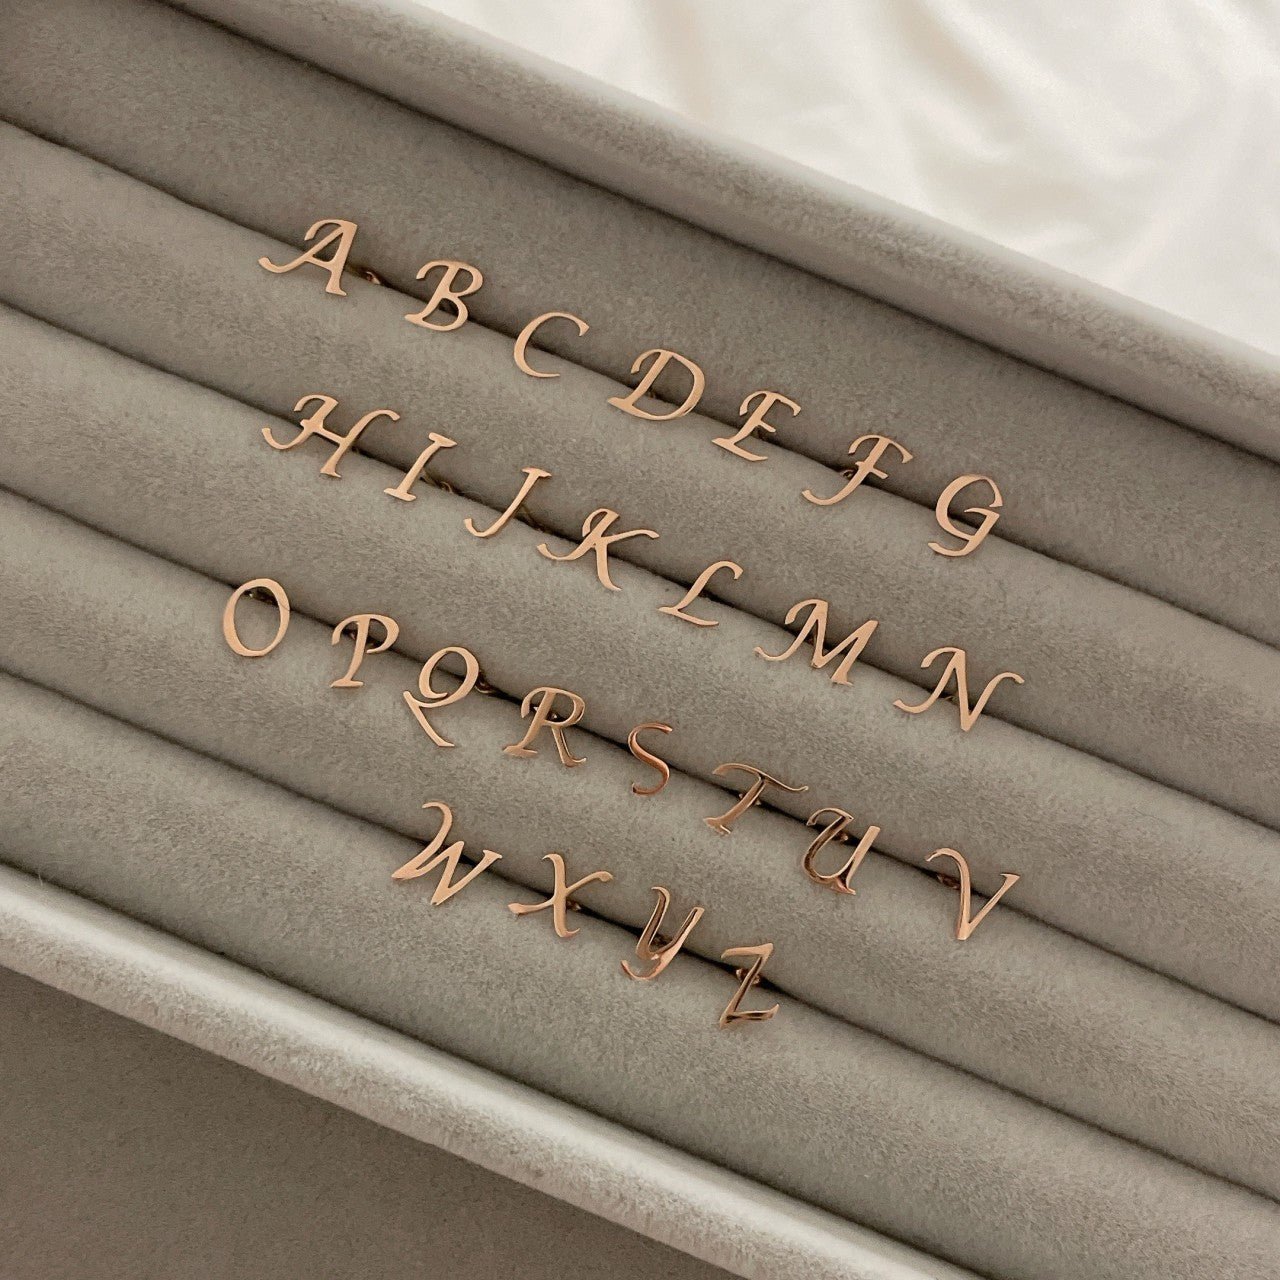 A B C D E F G
H I J K L M N
O P Q R S T U V
W X Y Z